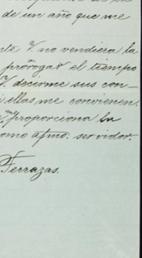 de un año que me
no vendiera la
prórroga el tiempo
decirme sus con-
ellas, me convienen,
proporciona la
como afmo. servidor
Terrazas.